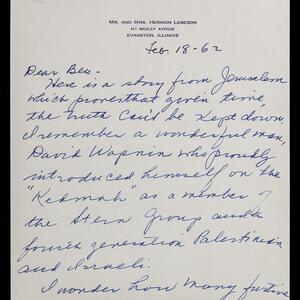 MR. AND MRS. HERMON LEBESON
911 WESLEY AVENUE
EVANSTON, ILLINOIS
Feb. 18-62
Dear Ben -
Here is a story from Jerusalem
which proves that given time,
the truth can't be kept down.
I remember a wonderful man,
David Wapnin who proudly
introduced himself on the
"Kedmah" as a member of
the Stern Group and a
fourth generation Palestinian
and Israeli.
I wonder how many furtive